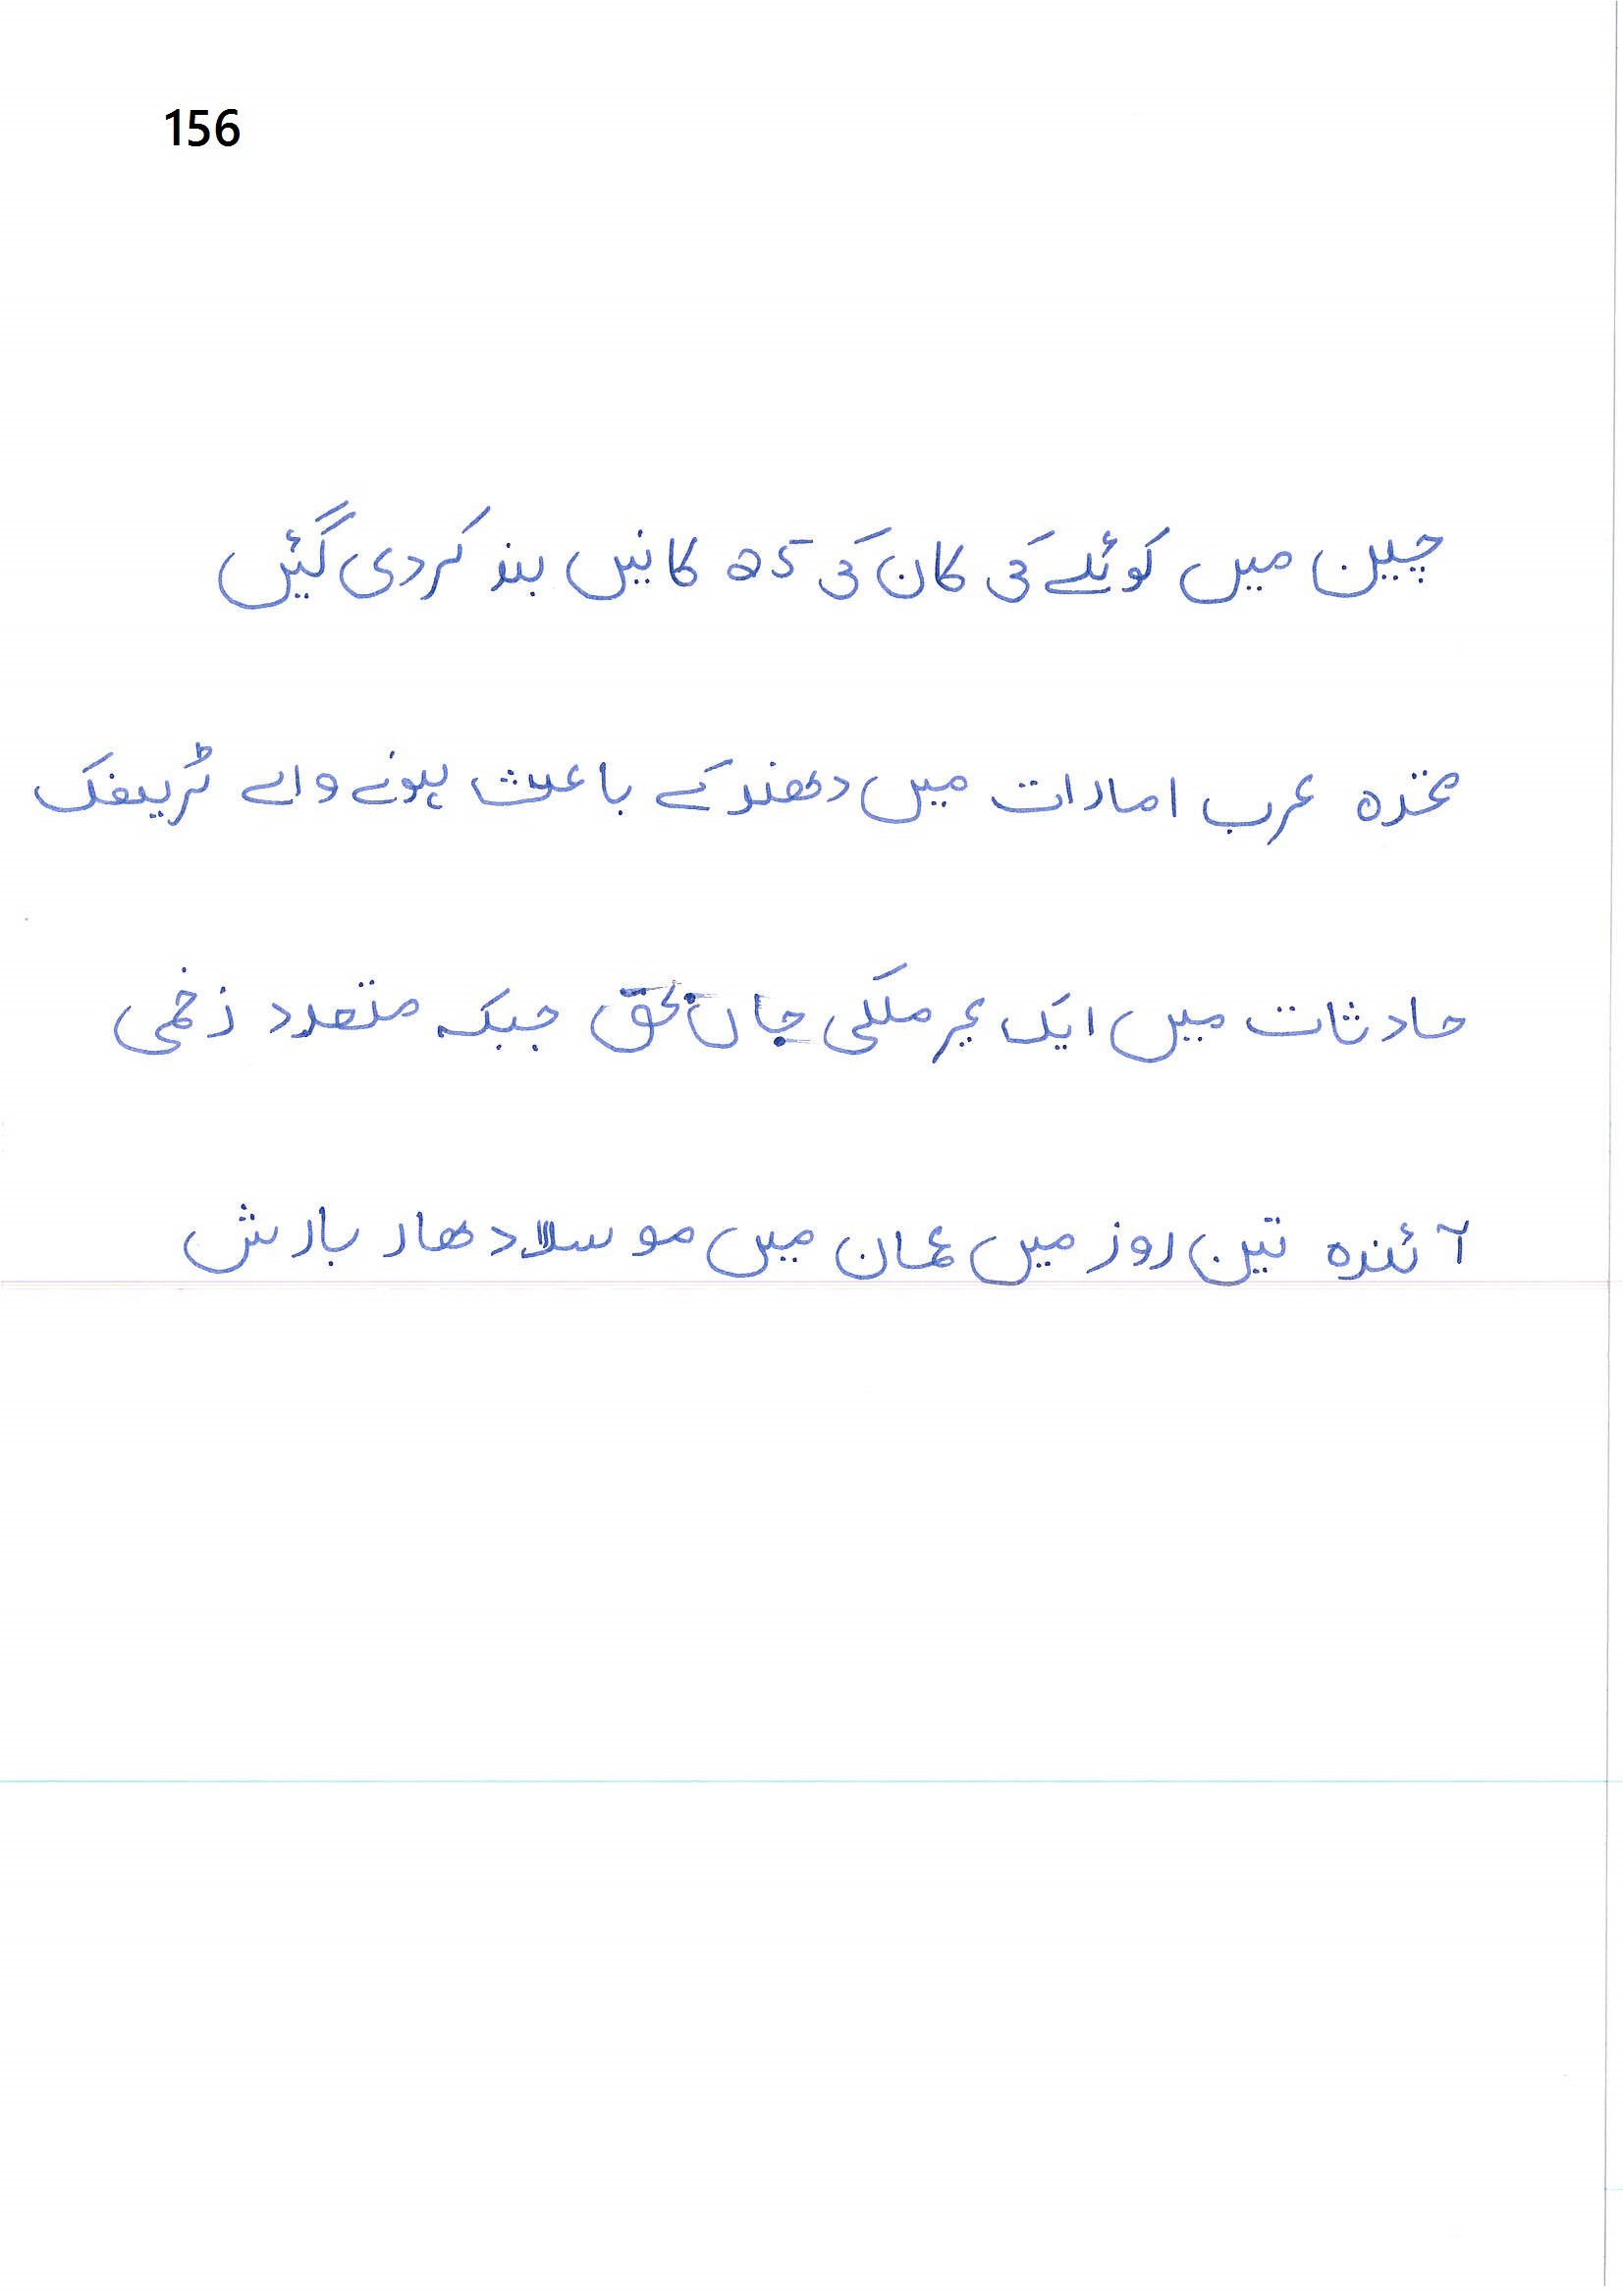 156
چین میں کوئلے کی کان کی 50 کانیں بند کردی گئیں
متحدہ عرب امارات میں دھند کے باعث ہونے والے ٹریفک
حادثات میں ایک غیر ملکی جاں بحق جبکہ متعدد زخمی
آئندہ تین روز میں عمان میں موسلادھار بارش